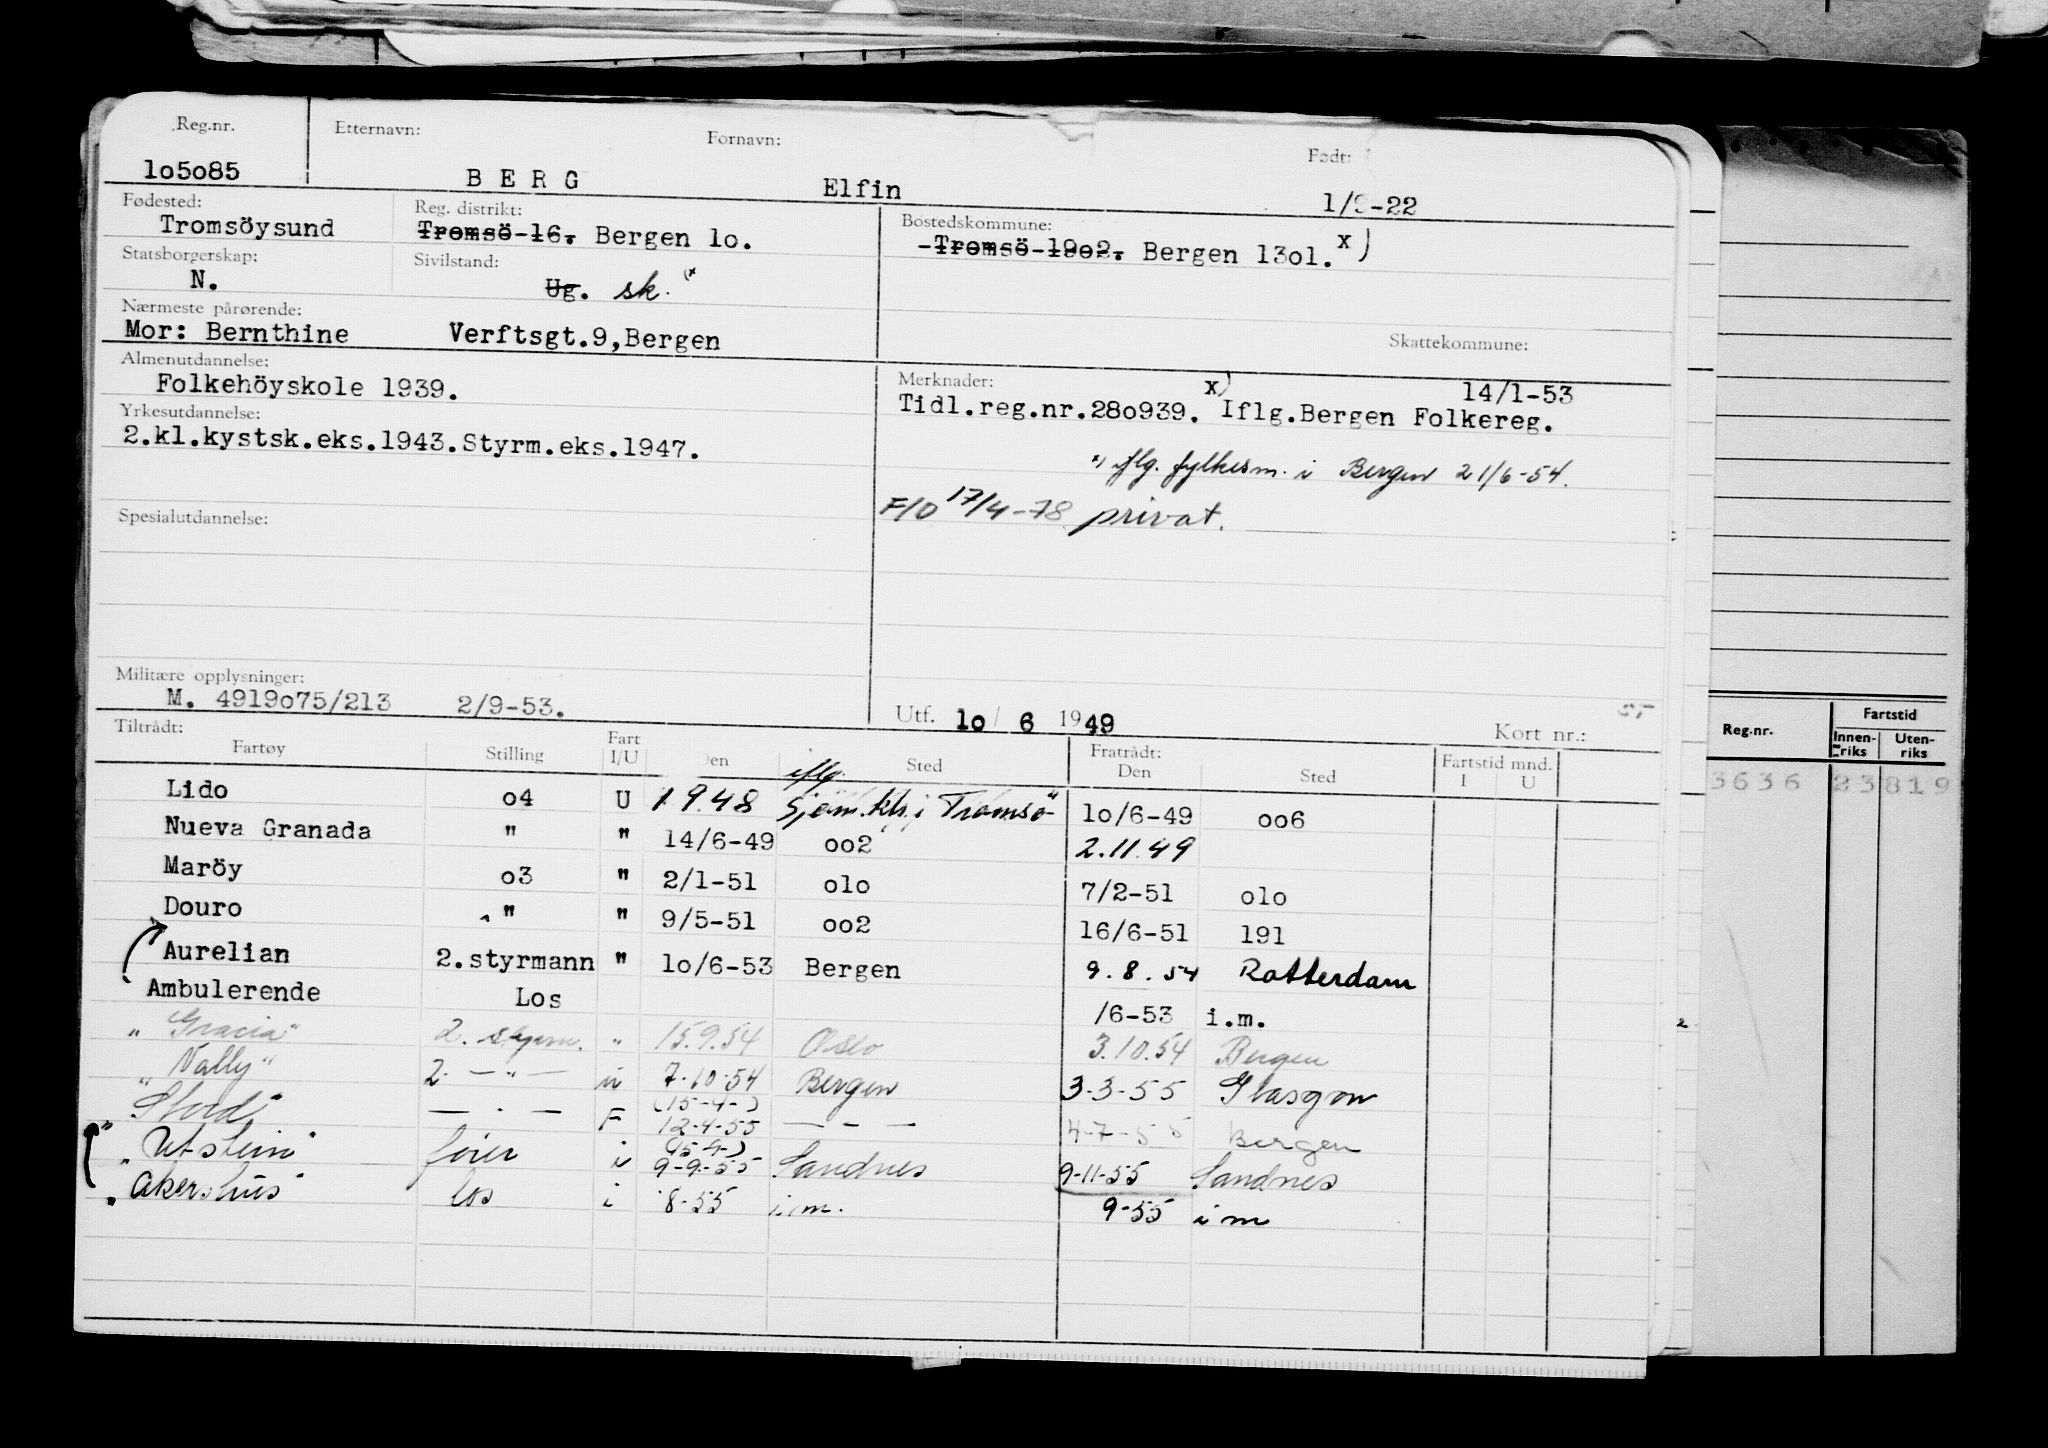 Reg.nr. Etternavn: Fornavn: Født:
lo5o85 B E R G Elfin 1/9-22
Fødested: Reg. distrikt: Bostedskommune:
Tromsöysund Tromsö-16. Bergen lo. -Tromsö-19o2. Bergen 13o1. x)
Statsborgerskap: Sivilstand:
N. Ug. sk. x
Nærmeste pårørende:
Mor: Bernthine Verftsgt.9,Bergen Skattekommune:
Almenutdannelse: Merknader:
Folkehöyskole 1939. x) 14/1-53
Tidl.reg.nr.28o939. Iflg.Bergen Folkereg.
Yrkesutdannelse:
2.kl.kystsk.eks.1943.Styrm.eks.1947.
x) iflg. fylkesm. i Bergen 21/6-54.
F/O 17/4-78 privat.
Spesialutdannelse:
Militære opplysninger:
M. 4919o75/213 2/9-53. Utf. lo/ 6 1949 Kort nr.:
Tiltrådt: Fratrådt: Fartstid mnd.
Fartøy Stilling Fart I/U Den Sted Den Sted I U
Lido o4 U 1.9.48 iflg. Sjøm.ktr. i Tromsö lo/6-49 oo6
Nueva Granada " " 14/6-49 oo2 2.11.49
Maröy o3 " 2/1-51 olo 7/2-51 olo
Douro " " 9/5-51 oo2 16/6-51 191
Aurelian 2.styrmann " lo/6-53 Bergen 9.8.54 Rotterdam
Ambulerende Los /6-53 i.m.
"Gracia" 2. styrm. " 15.9.54 Oslo 3.10.54 Bergen
"Nally" 2. — " — u 7-10-54 Bergen 3-3-55 Glasgow
"Stord" — " — F (15-4-) 12-4-55 — " — 4-7-55 Bergen
"Utstein" fører i (15-4-) 9-9-55 Sandnes 9-11-55 Sandnes
"Akershus" los i 8-55 i.m. 9-55 i m
Reg.nr. Fartstid
Innen-riks Uten-riks
3636 23 819